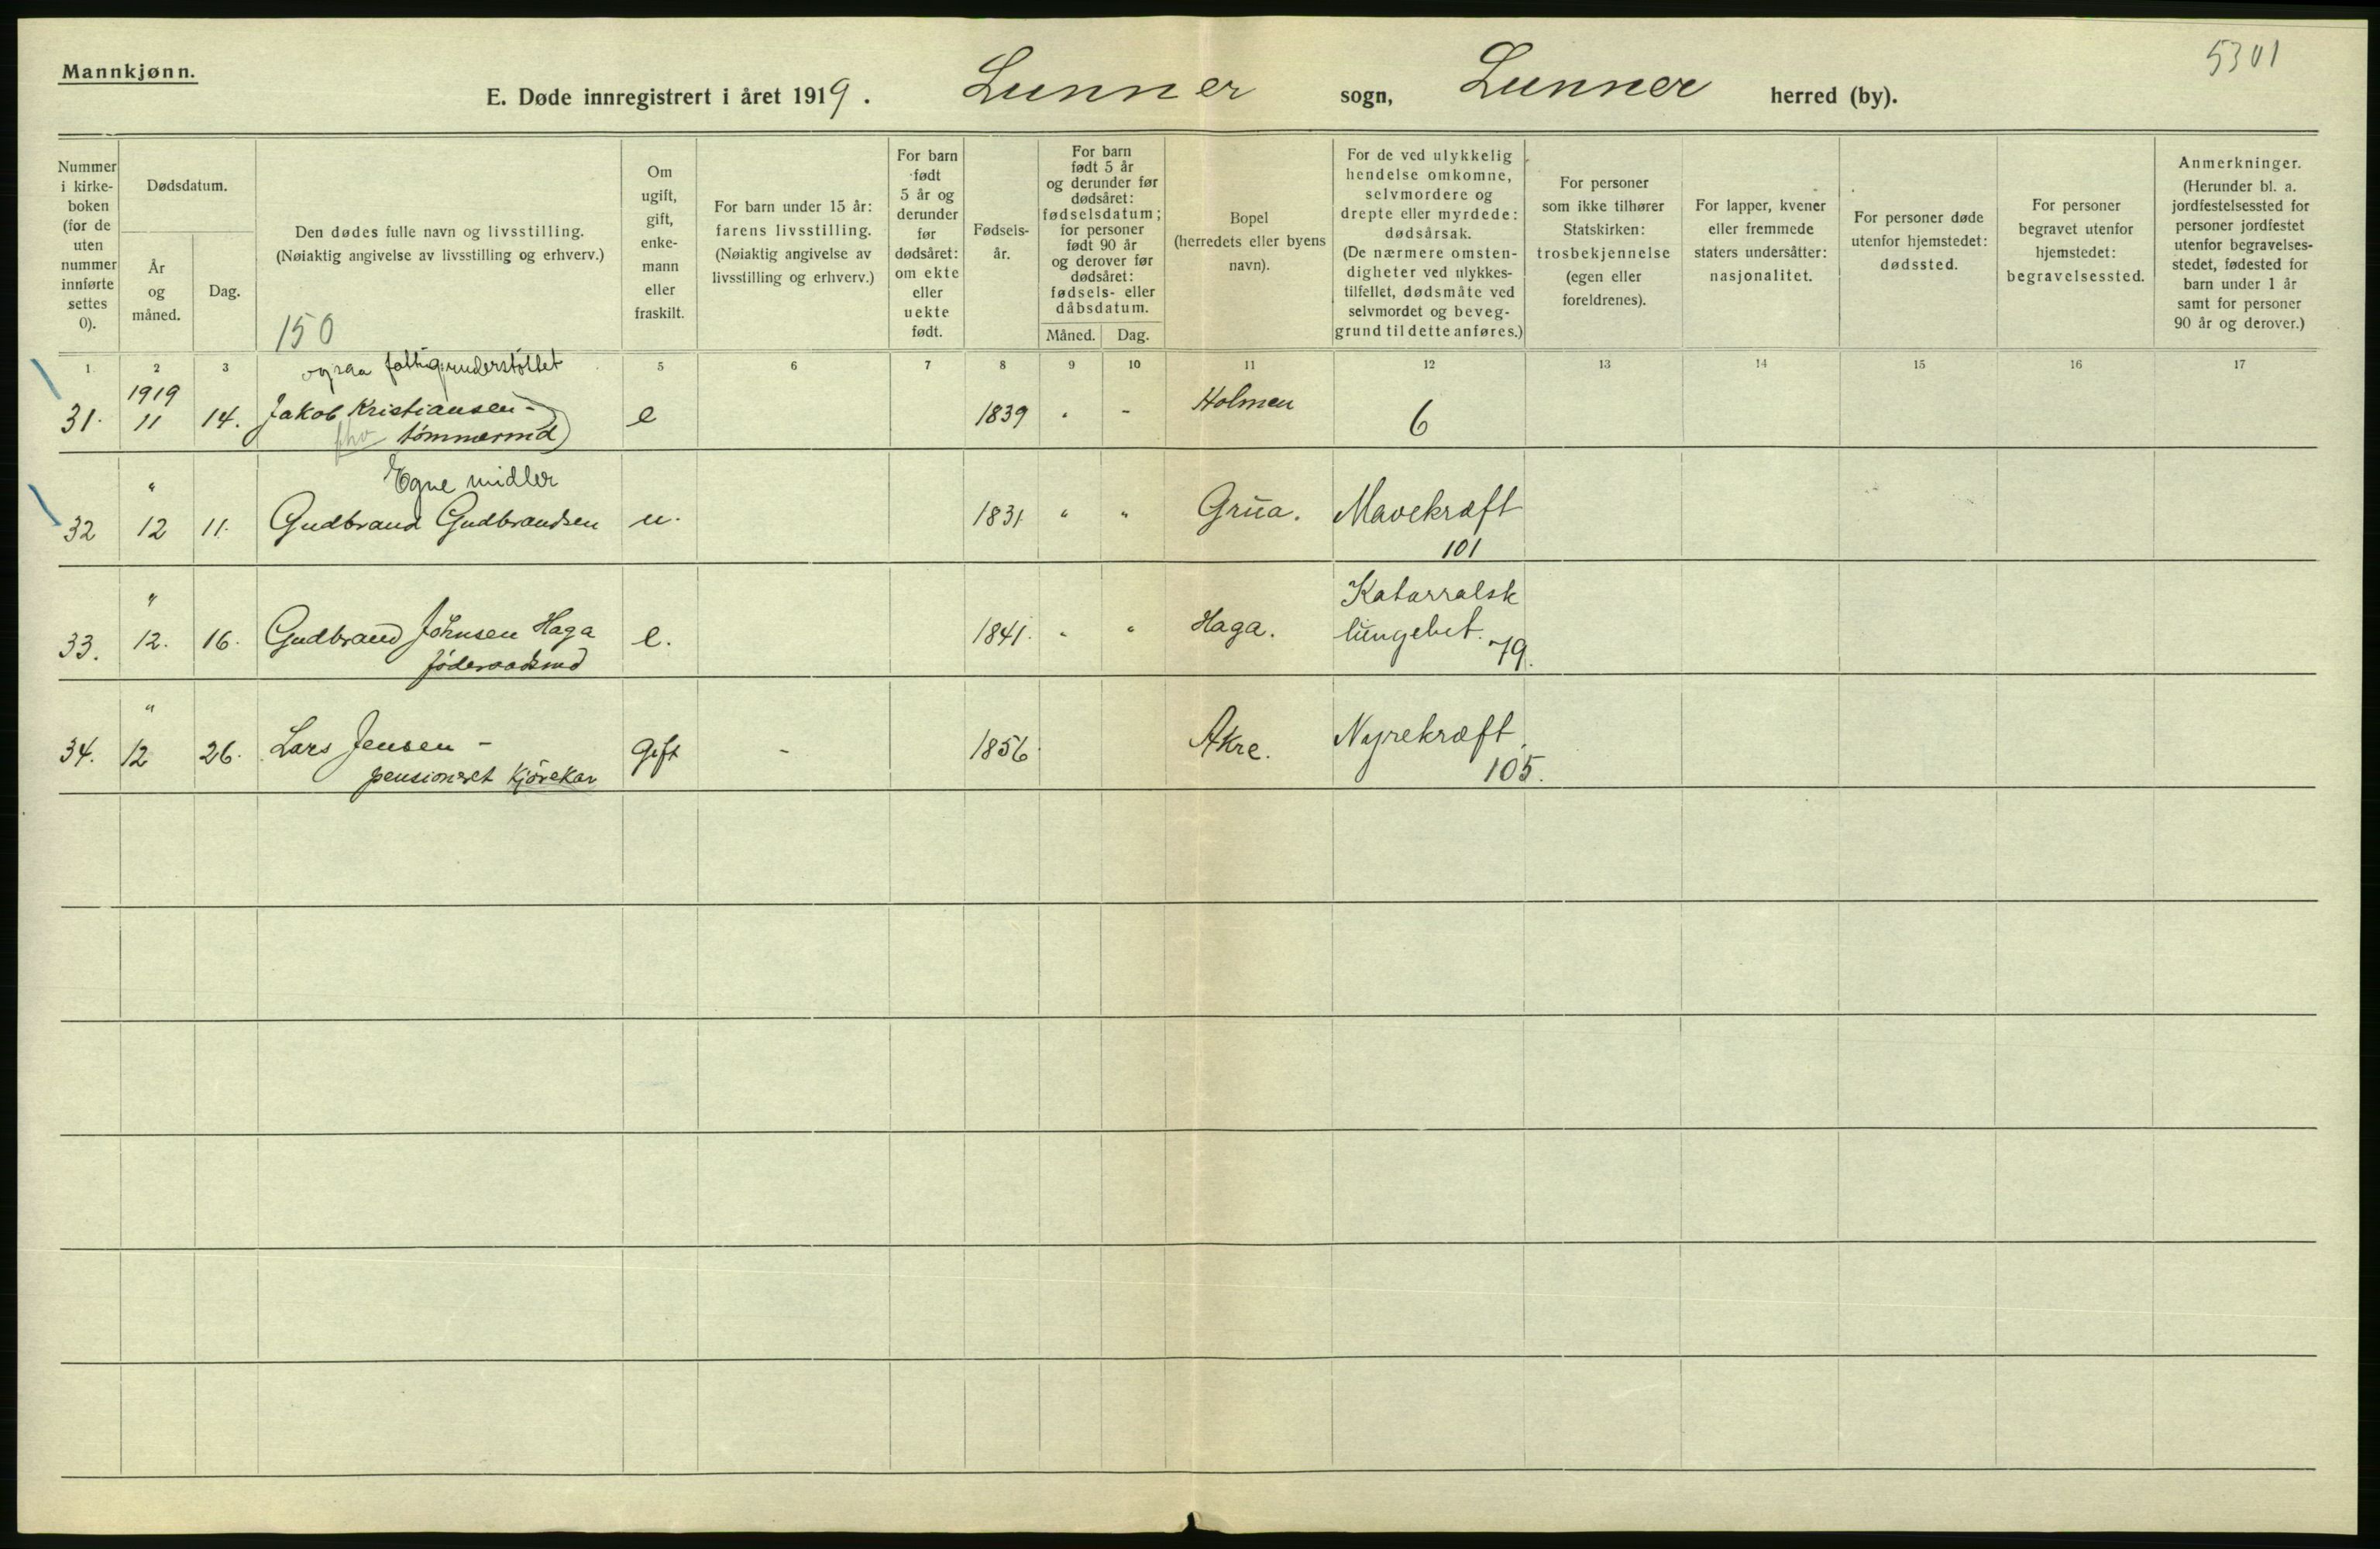 Mannkjønn.
5301
E. Døde innregistrert i året 1919. Lunner sogn, Lunner herred (by).
Nummer i kirke- boken (for de uten nummer innførte settes 0).
Dødsdatum.
År og måned.
Dag.
Den dødes fulle navn og livsstilling.
(Nøiaktig angivelse av livsstilling og erhverv.)
150
Om ugift, gift, enke- mann eller fraskilt.
For barn under 15 år: farens livsstilling. (Nøiaktig angivelse av livsstilling og erhverv.)
For barn født 5 år og derunder før dødsåret: om ekte eller uekte født.
Fødsels- år.
For barn født 5 år og derunder før dødsåret: fødselsdatum; for personer født 90 år og derover før dødsåret: fødsels- eller dåbsdatum.
Måned. Dag.
Bopel (herredets eller byens navn).
For de ved ulykkelig hendelse omkomne, selvmordere og drepte eller myrdede: dødsårsak. (De nærmere omsten- digheter ved ulykkes- tilfellet, dødsmåte ved selvmordet og beveg- grund til dette anføres.)
For personer som ikke tilhører Statskirken: trosbekjennelse (egen eller foreldrenes).
For lapper, kvener eller fremmede staters undersåtter: nasjonalitet.
For personer døde utenfor hjemstedet: dødssted.
For personer begravet utenfor hjemstedet: begravelsessted.
Anmerkninger. (Herunder bl. a. jordfestelsessted for personer jordfestet utenfor begravelses- stedet, fødested for barn under 1 år samt for personer 90 år og derover.)
1 2 3 5 6 7 8 9 10 11 12 13 14 15 16 17
ogsaa fattigunderstöttet
1919
31. 11 14. Jakob Kristiansen - e 1839 " - Holmen 6
fhv tömmermd)
" Egne midler
32 12 11. Gudbrand Gudbrandsen u. 1831 " " Grua. Mavekræft
101
" Katarralsk
33. 12. 16. Gudbrand Johnsen Haga e. 1841. " " Haga. lungebet. 79.
föderaadsmd
"
34. 12 26. Lars Jensen - Gift - 1856 Akre. Nyrekræft
pensioneret Kjörekar 105.